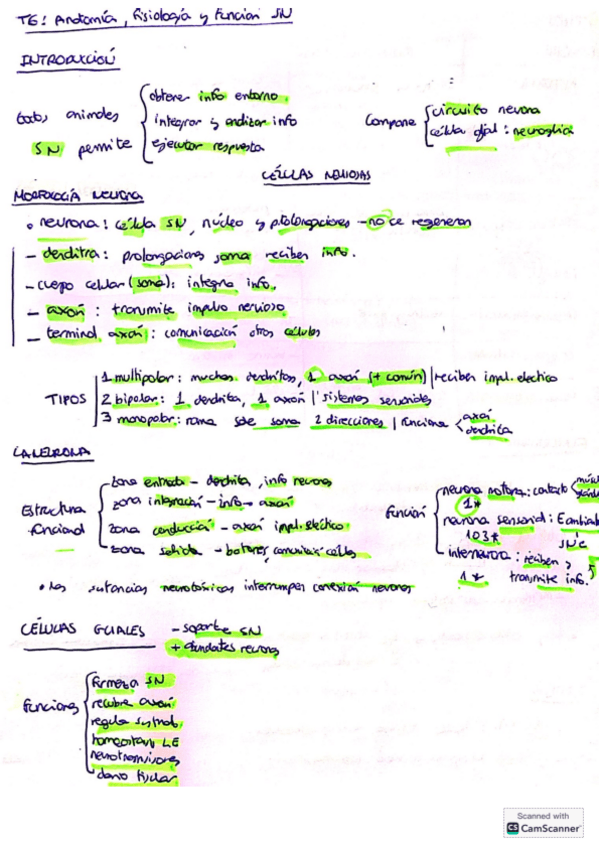 T6: Anatomía, fisiología y función SN
INTRODUCCIÓN
todos animales SN permite
obtener info entorno.
integrar y analizar info
ejecutar respuesta
Compone
circuito neurona
célula glial: neuroglia
CÉLULAS NERVIOSAS
MORFOLOGÍA NEURONA
• neurona: célula SN, núcleo y prolongaciones - no se regeneran
- dendrita: prolongaciones soma reciben info.
- cuerpo celular (soma): integra info.
- axón: transmite impulso nervioso.
- terminal axón: comunicación otras células
TIPOS
1 multipolar: muchas dendritas, 1 axón (+ común) | reciben impl. electico
2 bipolar: 1 dendrita, 1 axón | sistemas sensoriales
3 monopolar: rama sale soma 2 direcciones | funciona axón dendrita
LA NEURONA
Estructura funcional
zona entrada - dendrita, info neurona
zona integración - info → axón
zona conducción - axón impl. eléctico
zona salida - botones, comunicación células
función
neurona motora: contacto
1*
neurona sensorial:
103*
interneurona: reciben y
1* transmite info.
• las sustancias neurotóxicas interrumpen conexión neurona
CÉLULAS GLIALES - soporte SN
+ abundantes neurona
Funciones
firmeza SN
recubre axón
regula
neurotransmisores
daño
Scanned with
CS CamScanner